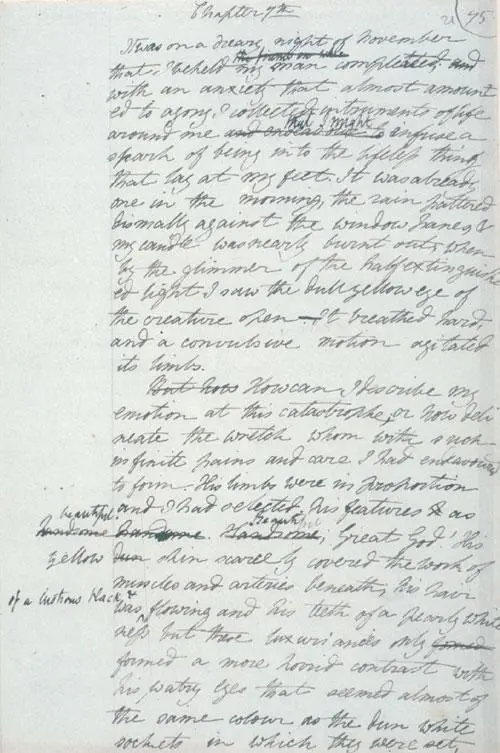 Chapter 7th
21 95
It was on a dreary night of November
the frame on whic
that I beheld my man compleated; and
with an anxiety that almost amount
ed to agony, I collected instruments of life
that I might
around me and endeavour to infuse a
spark of being into the lifeless thing
that lay at my feet. It was already
one in the morning, the rain pattered
dismally against the window panes, &
my candle was nearly burnt out, when
by the glimmer of the half extinguish
ed light I saw the dull yellow eye of
the creature open—It breathed hard,
and a convulsive motion agitated
its limbs.
But how How can I describe my
emotion at this catastrophe, or how deli
neate the wretch whom with such
infinite pains and care I had endeavoured
to form. His limbs were in proportion
and I had selected his features as
beautiful. Beautiful
handsome handsome. Handsome, Great God! His
yellow dun skin scarcely covered the work of
muscles and arteries beneath; his hair
of a lustrous black, &
was flowing and his teeth of a pearly white
ness but these luxuriances only
formed a more horrid contrast with
his watry eyes that seemed almost of
the same colour as the dun white
sockets in which they were set